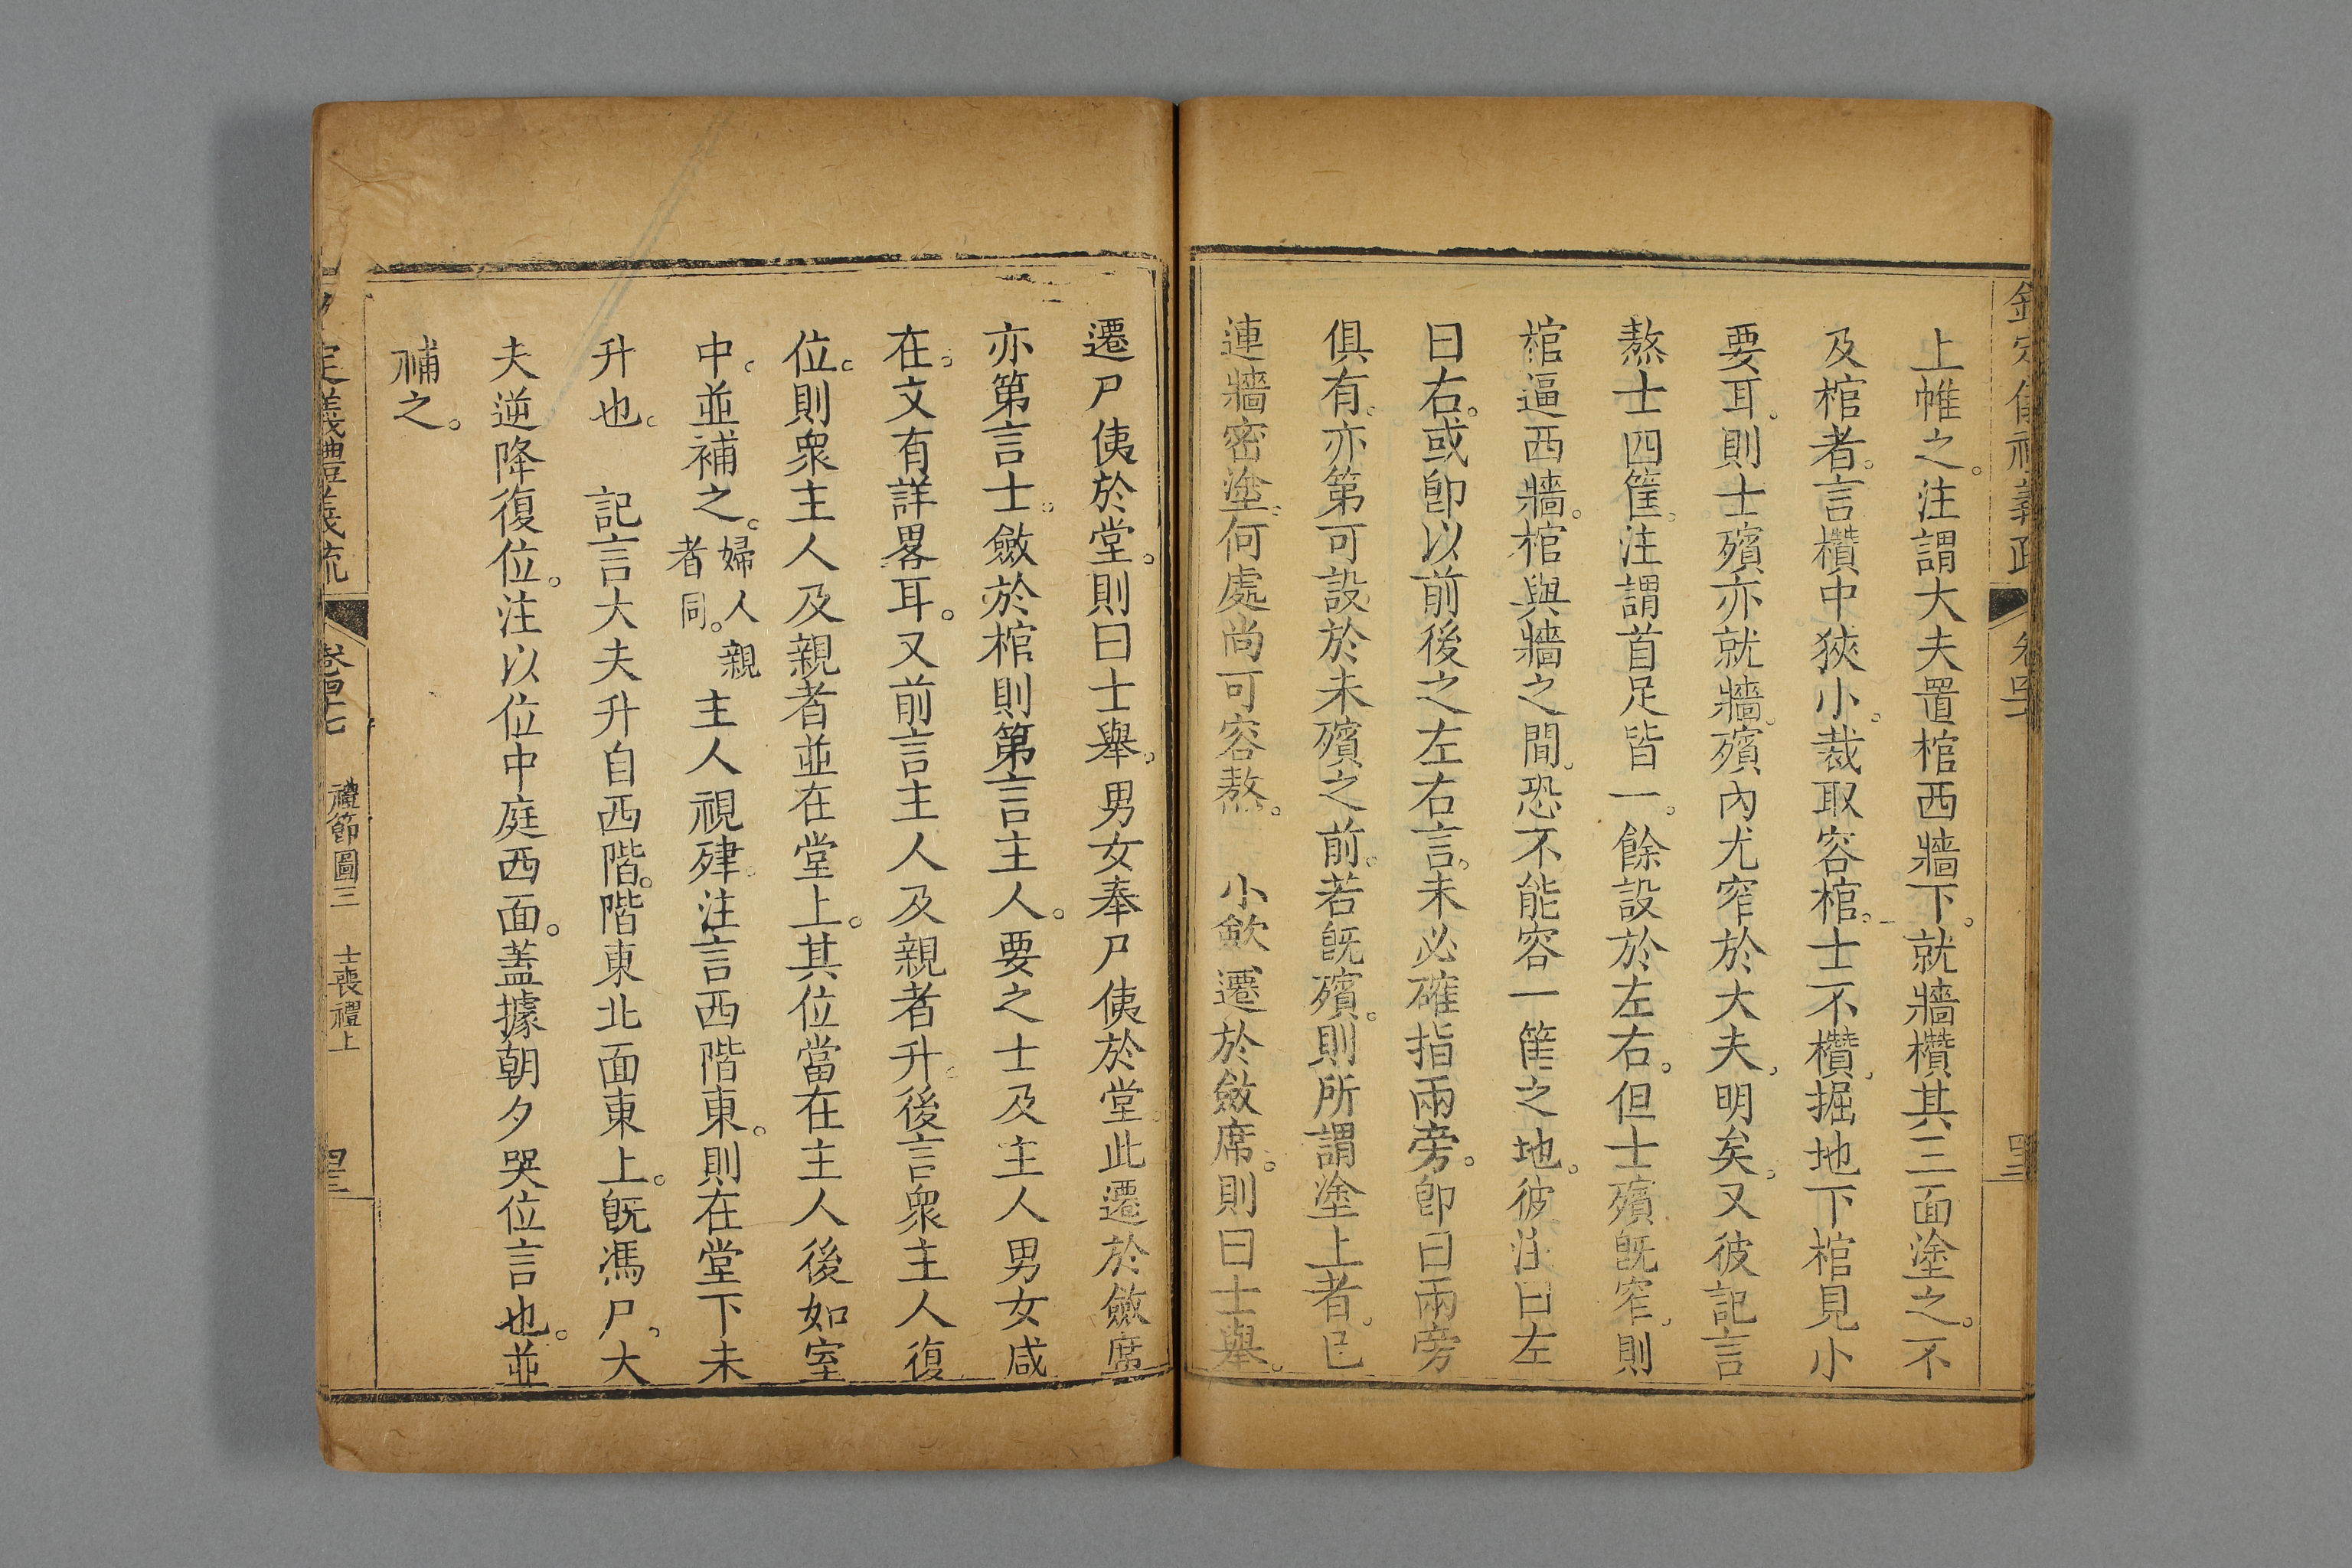 上帷之。注謂大夫置棺西牆下。就牆欑其三面塗之。不
及棺者。言欑中狹小。裁取容棺。士不欑。掘地下棺見小
要耳。則士殯亦就牆。殯內尤窄於大夫。明矣。又彼記言
熬士四筐。注謂首足皆一。餘設於左右。但士殯旣窄。則
棺逼西牆。棺與牆之間。恐不能容一筐之地。彼注曰左
曰右。或卽以前後之左右言。未必確指兩旁。卽曰兩旁
俱有。亦第可設於未殯之前。若旣殯。則所謂塗上者。已
連牆密塗。何處尚可容熬。　小歛遷於斂席。則曰士舉。
遷尸侇於堂。則曰士舉。男女奉尸侇於堂。此遷於斂席
亦第言士。斂於棺則第言主人。要之士及主人男女咸
在。文有詳畧耳。又前言主人及親者升。後言衆主人復
位。則衆主人及親者並在堂上。其位當在主人後如室
中。並補之。婦人親者同。主人視肂。注言西階東。則在堂下未
升也。　記言大夫升自西階。階東北面東上。旣馮尸。大
夫逆降復位。注以位中庭西面。蓋據朝夕哭位言也。並
補之。
定義禮義疏　卷四十七　禮節圖三　士喪禮上